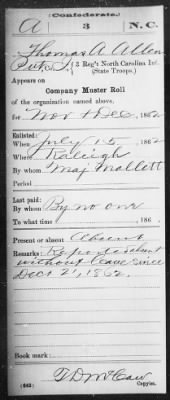 (Confederate.)
A 3 N.C.
Thomas A. Allen
Pvt, 3 Reg't North Carolina Inf.
(State Troops.)
Appears on
Company Muster Roll
of the organization named above,
for Nov & Dec, 1862
Enlisted:
When July 15, 1862
Where Raleigh
By whom Maj Mallett
Period
Last paid:
By whom By no one
To what time , 186 .
Present or absent Absent
Remarks: Reported absent
without leave since
Dec 21, 1862.
Book mark:
T D McCaw
(642) Copyist.